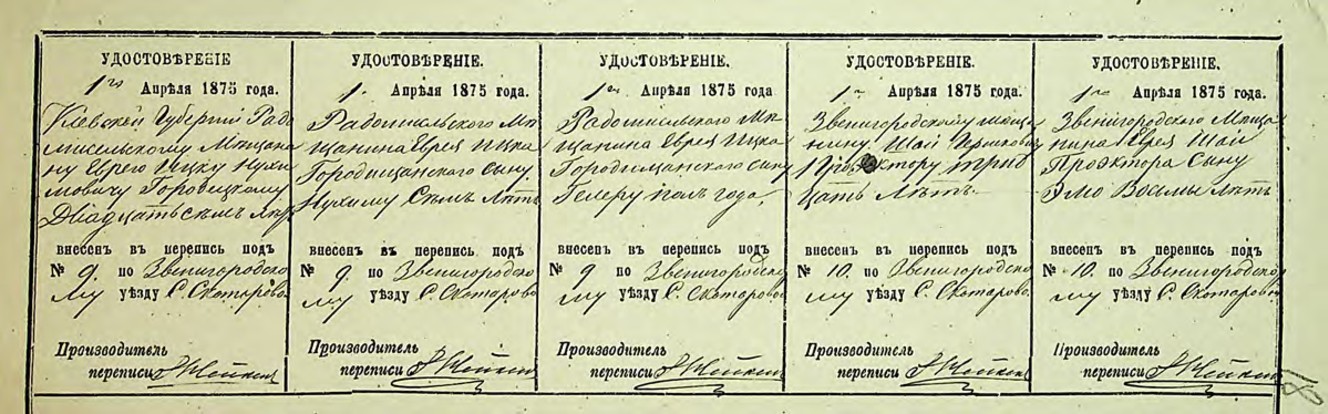 УДОСТОВѢРЕНІЕ
1го Апрѣля 1875 года.
Кіевской Губерніи Радо
мысельскому Мѣщани
ну Еврею Ицку Нухи
мовичу Городицкому
Двадцать семь лѣт
внесенъ въ перепись подъ
№ 9. по Звенигородско
му уѣзду С. Скотарево.
Производитель
переписи
УДОСТОВѢРЕНІЕ.
1. Апрѣля 1875 года.
Радомысльского Мѣ
щанина Еврея Ицка
Городищанского сыну
Нухиму Семь лѣтъ
внесенъ въ перепись подъ
№ 9. по Звенигородско
му уѣзду С. Скотарево
Производитель
переписи
УДОСТОВѢРЕНІЕ.
1го Апрѣля 1875 года
Радомысльского Мѣ
щанина Еврея Ицка
Городищанского сыну
Гелеру полъ года,
внесенъ въ перепись подъ
№ 9 по Звенигородско
му уѣзду С. Скотарево
Производитель
переписи
УДОСТОВѢРЕНІЕ.
1го Апрѣля 1875 года.
Звенигородскому мѣща
нину Шаѣ
Проэктору трид
цать лѣтъ.
внесенъ въ перепись подъ
№ 10. по Звенигородско
му уѣзду С. Скотарево.
Производитель
переписи
УДОСТОВѢРЕНІЕ.
1го Апрѣля 1875 года.
Звенигородского Мѣща
нина Еврея Шаи
Проэктора Сыну
Элю Восемь лѣтъ
внесенъ въ перепись подъ
№ 10. по Звенигородско
му уѣзду С. Скотарево
Производитель
переписи